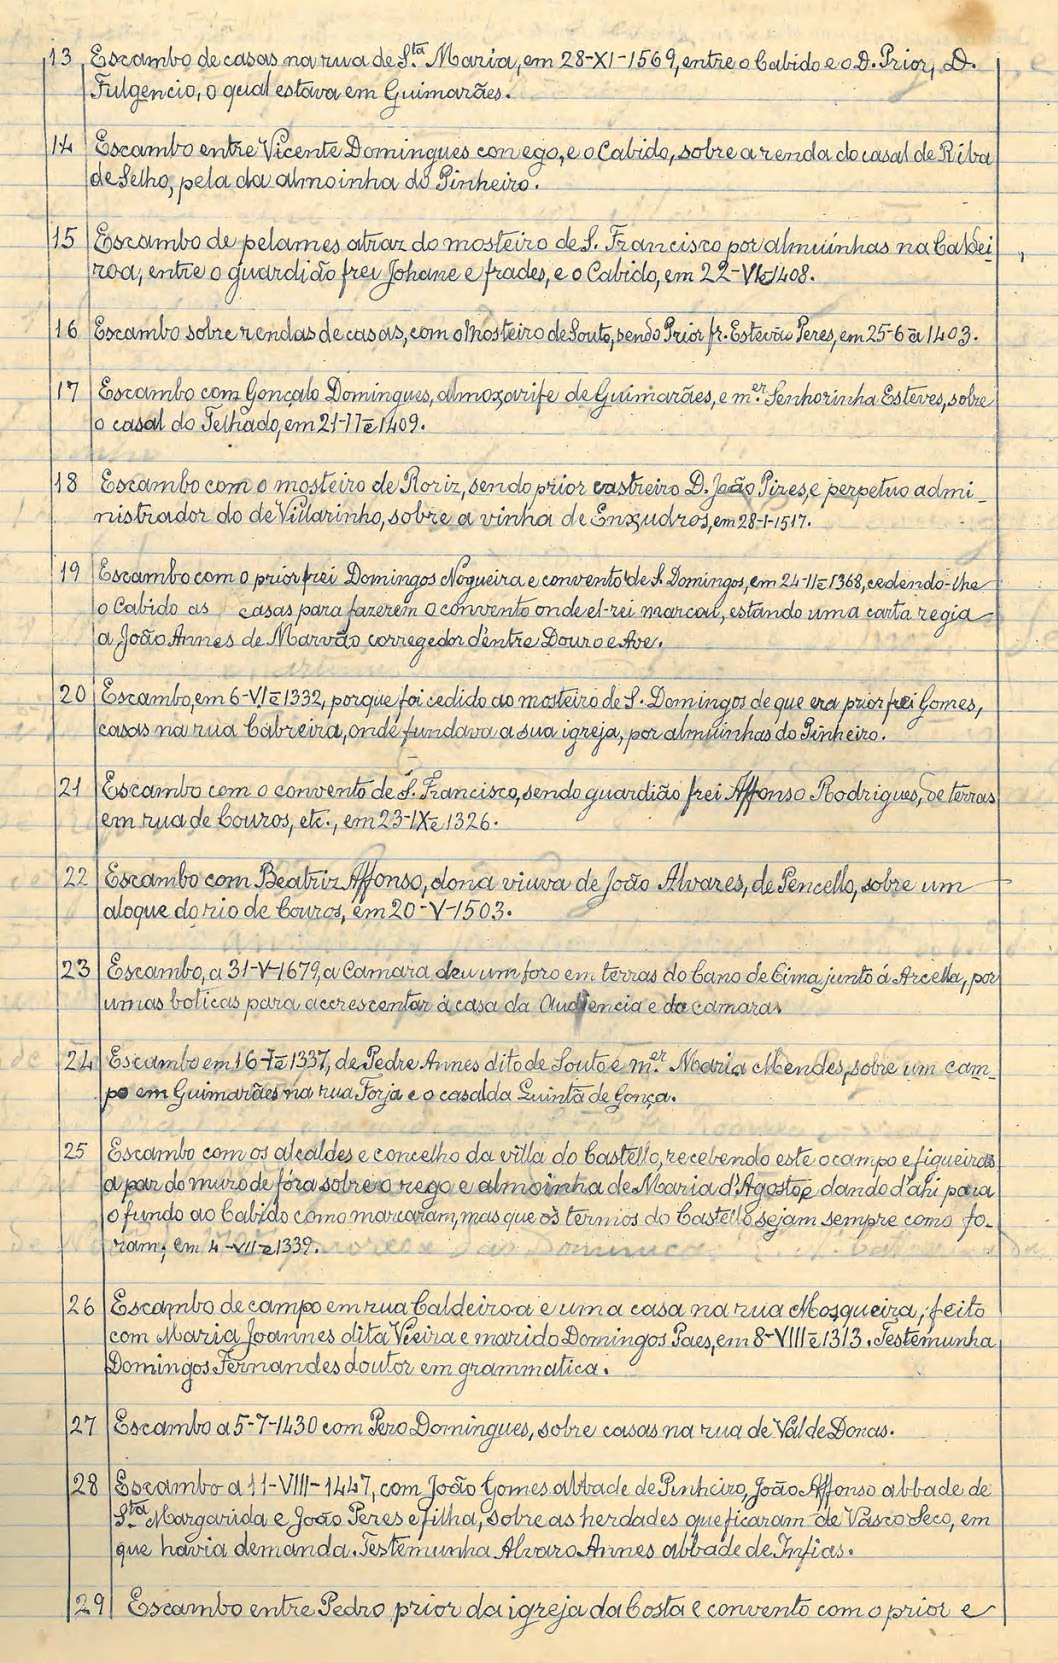 13 Escambo de casas na rua de S.ta Maria, em 28-XI-1569, entre o Cabido e o D. Prior, D.
Fulgencio, o qual estava em Guimarães.
14 Escambo entre Vicente Domingues conego, e o Cabido, sobre a renda do casal de Riba
de Selho, pela da almoinha do Pinheiro.
15 Escambo de pelames atraz do mosteiro de S. Francisco por almuinhas na Caldei
roa, entre o guardião frei Johane e frades, e o Cabido, em 22-VI-e 1408.
16 Escambo sobre rendas de casas, com o Mosteiro de Souto, sendo Prior fr. Estevão Peres, em 25-6 ē 1403.
17 Escambo com Gonçalo Domingues, almoxarife de Guimarães, e m.er Senhorinha Esteves, sobre
o casal do Telhado, em 21-II ē 1409.
18 Escambo com o mosteiro de Roriz, sendo prior castreiro D. João Pires, e perpetuo admi-
nistrador do de Villarinho, sobre a vinha de Enxudros, em 28-1-1517.
19 Escambo com o prior frei Domingos Nogueira e convento de S. Domingos, em 24-II ē 1368, cedendo-lhe
o Cabido as casas para fazerem o convento onde el-rei marcou, estando uma carta regia
a João Annes de Marvão corregedor d'entre Douro e Ave.
20 Escambo, em 6-VI ē 1332, porque foi cedido ao mosteiro de S. Domingos de que era prior frei Gomes,
casas na rua Cabreira, onde fundava a sua igreja, por almuinhas do Pinheiro.
21 Escambo com o convento de S. Francisco, sendo guardião frei Affonso Rodrigues, de terras
em rua de Couros, etc., em 23-IX ē 1326.
22 Escambo com Beatriz Affonso, dona viuva de João Alvares, de Pencello, sobre um
aloque do rio de Couros, em 20-V-1503.
23 Escambo, a 31-V-1679, a Camara deu um foro em terras do Cano de Cima junto á Arcella, por
umas boticas para accrescentar á casa da Audiencia e da camara
24 Escambo em 16-I ē 1337, de Pedre Annes dito de Souto e m.er Maria Mendes, sobre um cam-
po em Guimarães na rua Forja e o casal da Quintã de Gonça.
25 Escambo com os alcaldes e concelho da villa do Castello, recebendo este o campo e figueiras
a par do muro de fóra sobre o rego e almoinha de Maria d'Agosto, e dando d'ahi para
o fundo ao Cabido como marcaram, mas que os termos do Castello sejam sempre como fo-
ram; em 4-VII-ē 1339.
26 Escambo de campo em rua Caldeiroa e uma casa na rua Mosqueira, feito
com Maria Joannes dita Vieira e marido Domingos Paes, em 8-VIII ē 1313. Testemunha
Domingos Fernandes doutor em grammatica.
27 Escambo a 5-7-1430 com Pero Domingues, sobre casas na rua de Val de Donas.
28 Escambo a 11-VIII-1447, com João Gomes abbade de Pinheiro, João Affonso abbade de
S.ta Margarida e João Peres e filha, sobre as herdades que ficaram de Vasco Seco, em
que havia demanda. Testemunha Alvaro Annes abbade de Infias.
29 Escambo entre Pedro prior da igreja da Costa e convento com o prior e